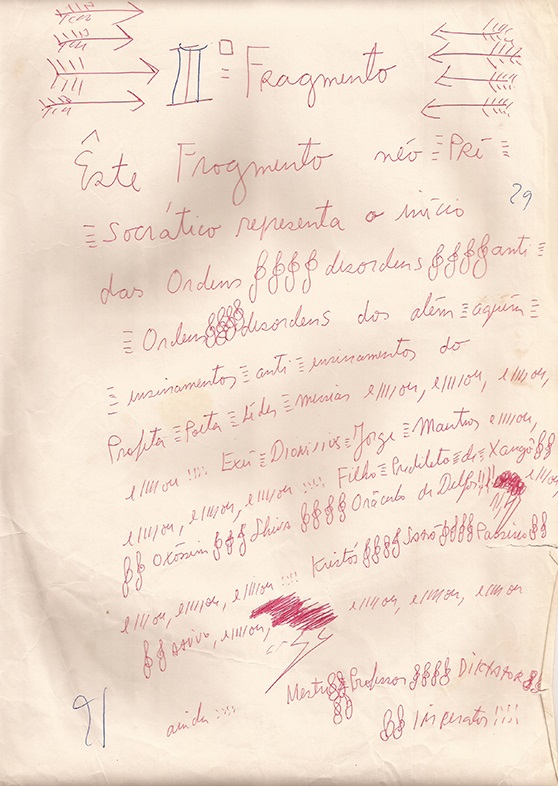 IIº = Fragmento
Êste Fragmento néo ≡ Pré ≡
≡ Socrático representa o início
das Ordens desordens anti ≡
≡ Ordens desordens dos além ≡ aquém ≡
≡ ensinamentos ≡ anti ≡ ensinamentos do
Profeta ≡ Poeta ≡ Líder ≡ messias e/////ou, e/////ou, e/////ou,
e/////ou !!!! Exú ≡ Dionisius ≡ Jorge ≡ Mautner e/////ou,
e/////ou, e/////ou, e/////ou !!!! Filho ≡ Predileto ≡ de ≡ Xangô
Oxóssim Shiva Oráculo de Delfos!!!! e/////ou
e/////ou, e/////ou, e/////ou !!!! Kristós Passivo
ativo, e/////ou, e/////ou, e/////ou, e/////ou
ainda !!!! Mestre Professor DIKTATOR
Imperator !!!!
29